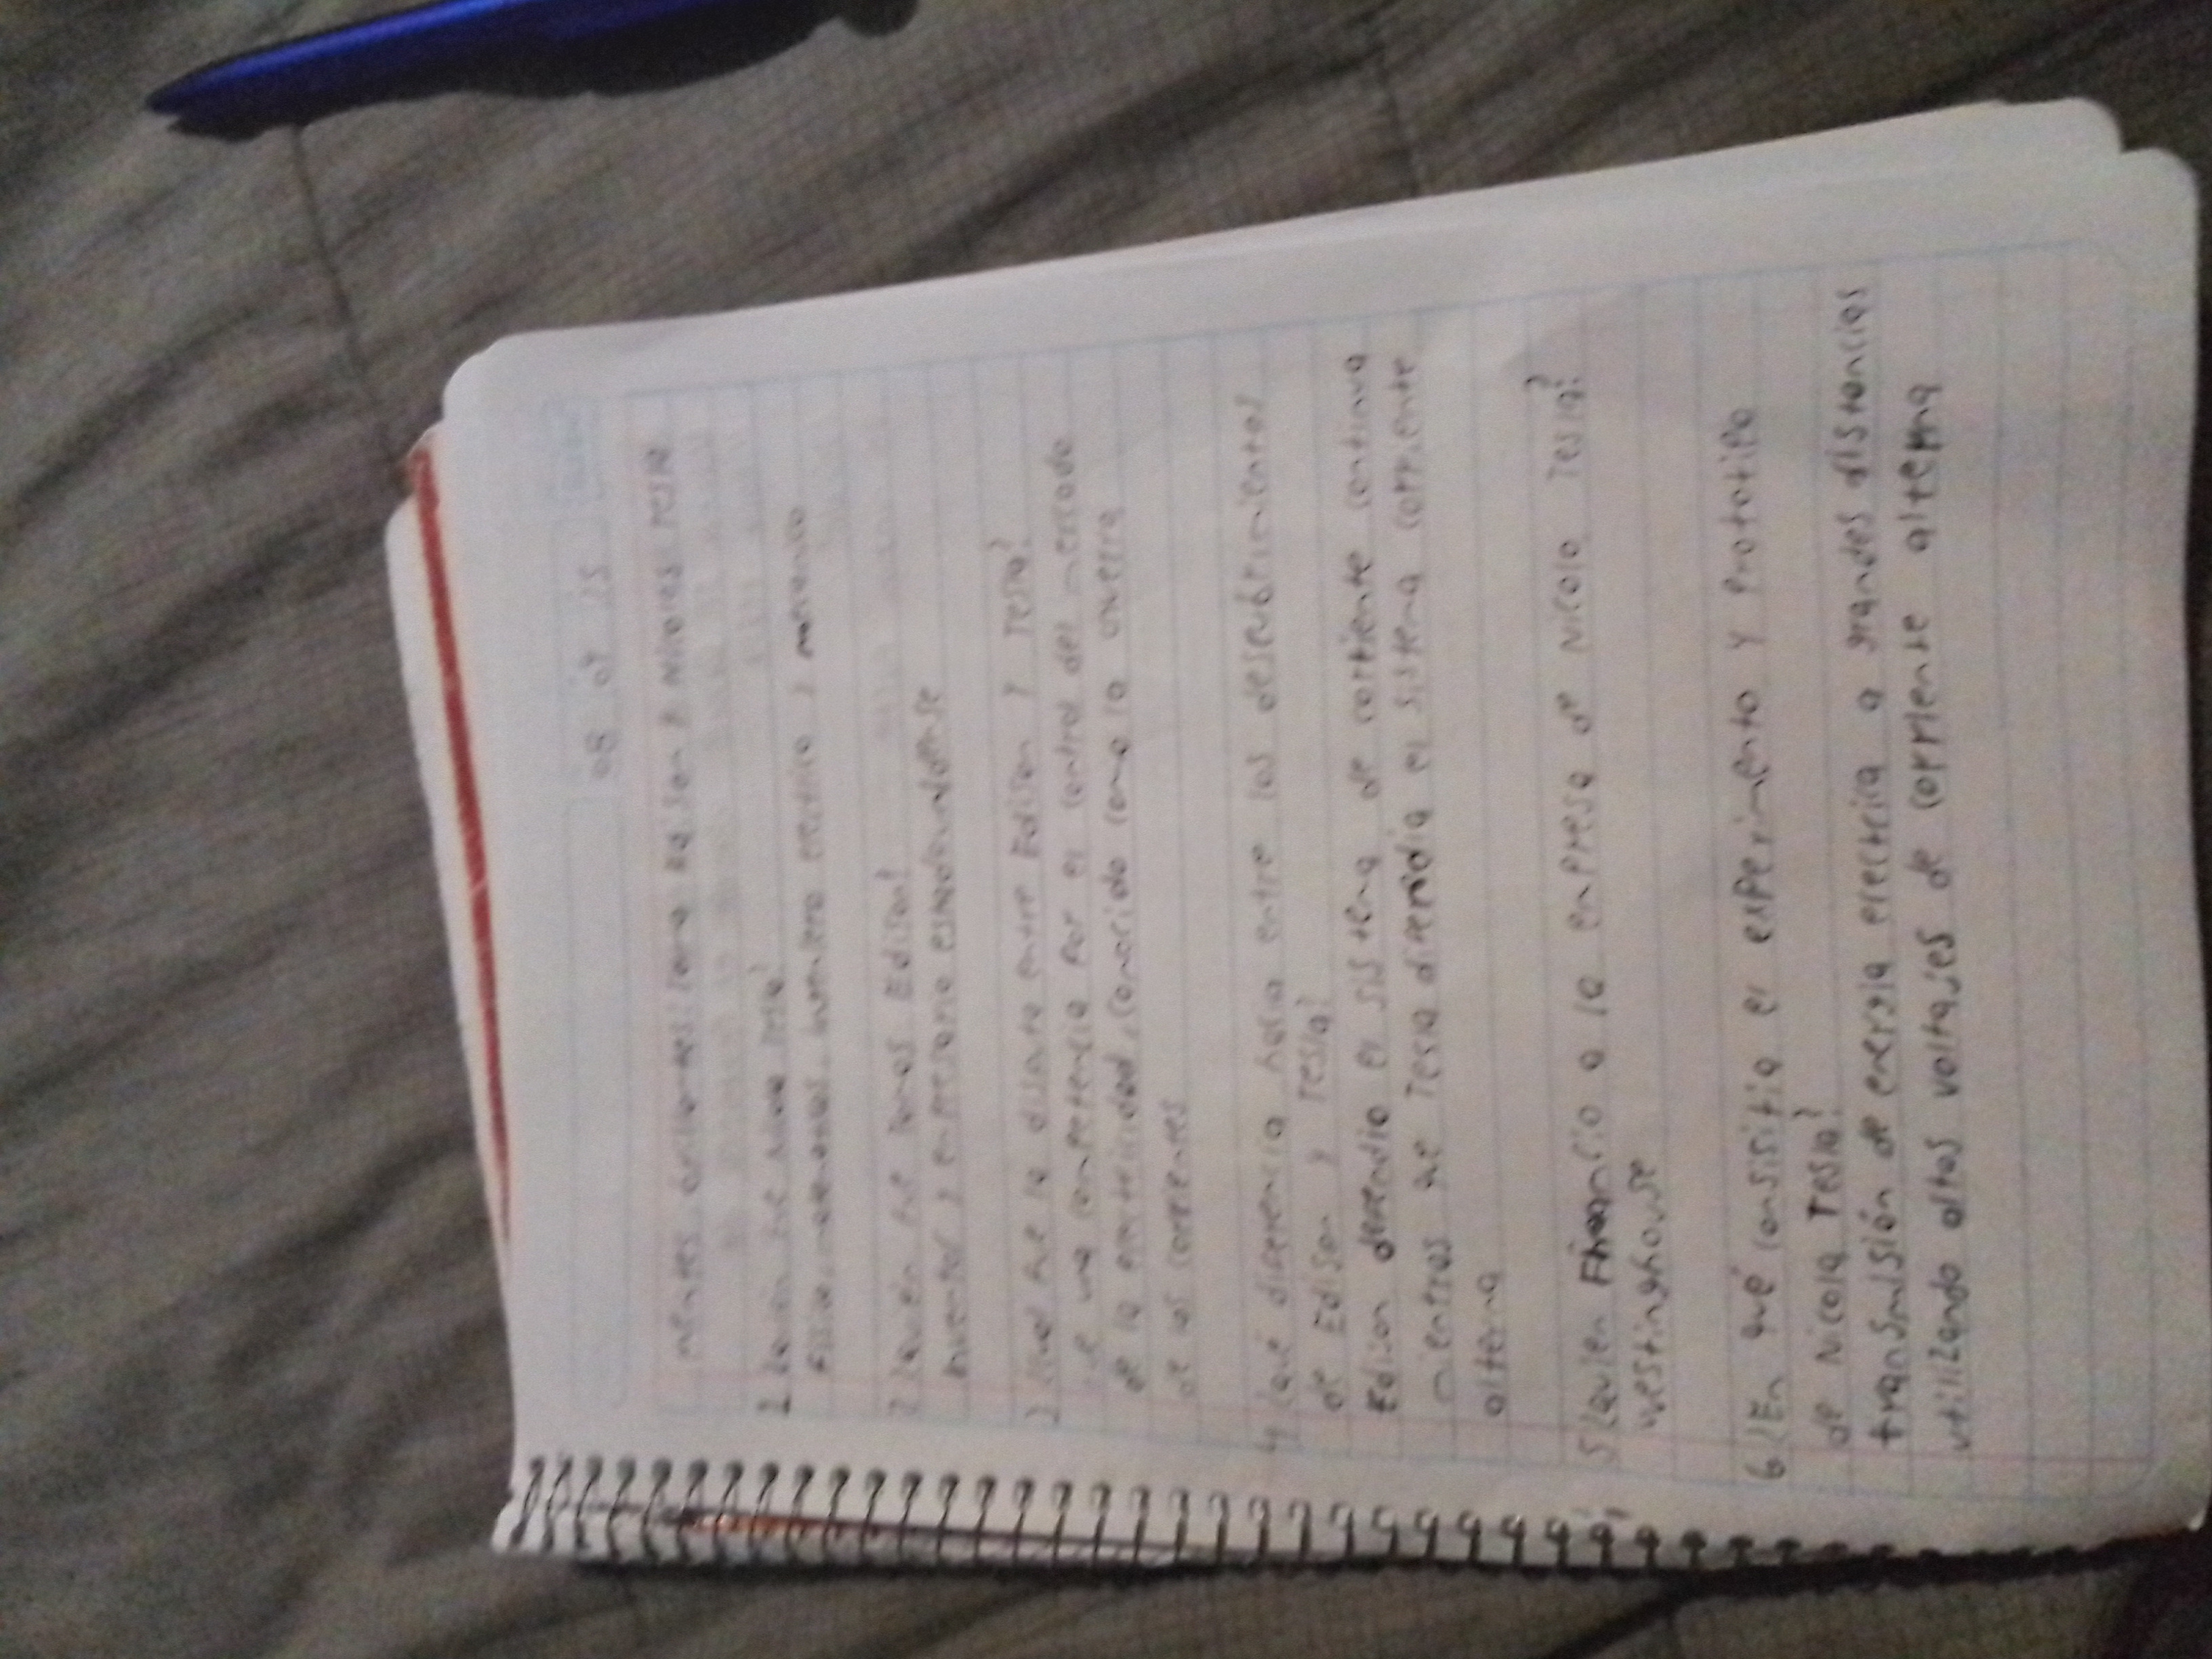 08 07 25
mentes brillantes: Tomas Edison y Nicolas Tesla
1 ¿Quién fue Nicola Tesla?
físico, inventor, ingeniero eléctrico y mecánico
2 ¿Quién fue Tomas Edison?
Inventor y empresario estadounidense
3 ¿Cuál fue la disputa entre Edison y Tesla?
fue una competencia por el control del mercado
de la electricidad, conocido como la guerra
de las corrientes
4 ¿Qué diferencia había entre los descubrimientos
de Edison y Tesla?
Edison defendio el sistema de corriente continua
mientras que Tesla difendia el sistema corriente
alterna
5 ¿Quien Financio a la empresa de Nicola Tesla?
Westinghouse
6 ¿En qué consistia el experimento y prototipo
de Nicola Tesla?
transmisión de energía electrica a grandes distancias
utilizando altos voltajes de corriente alterna